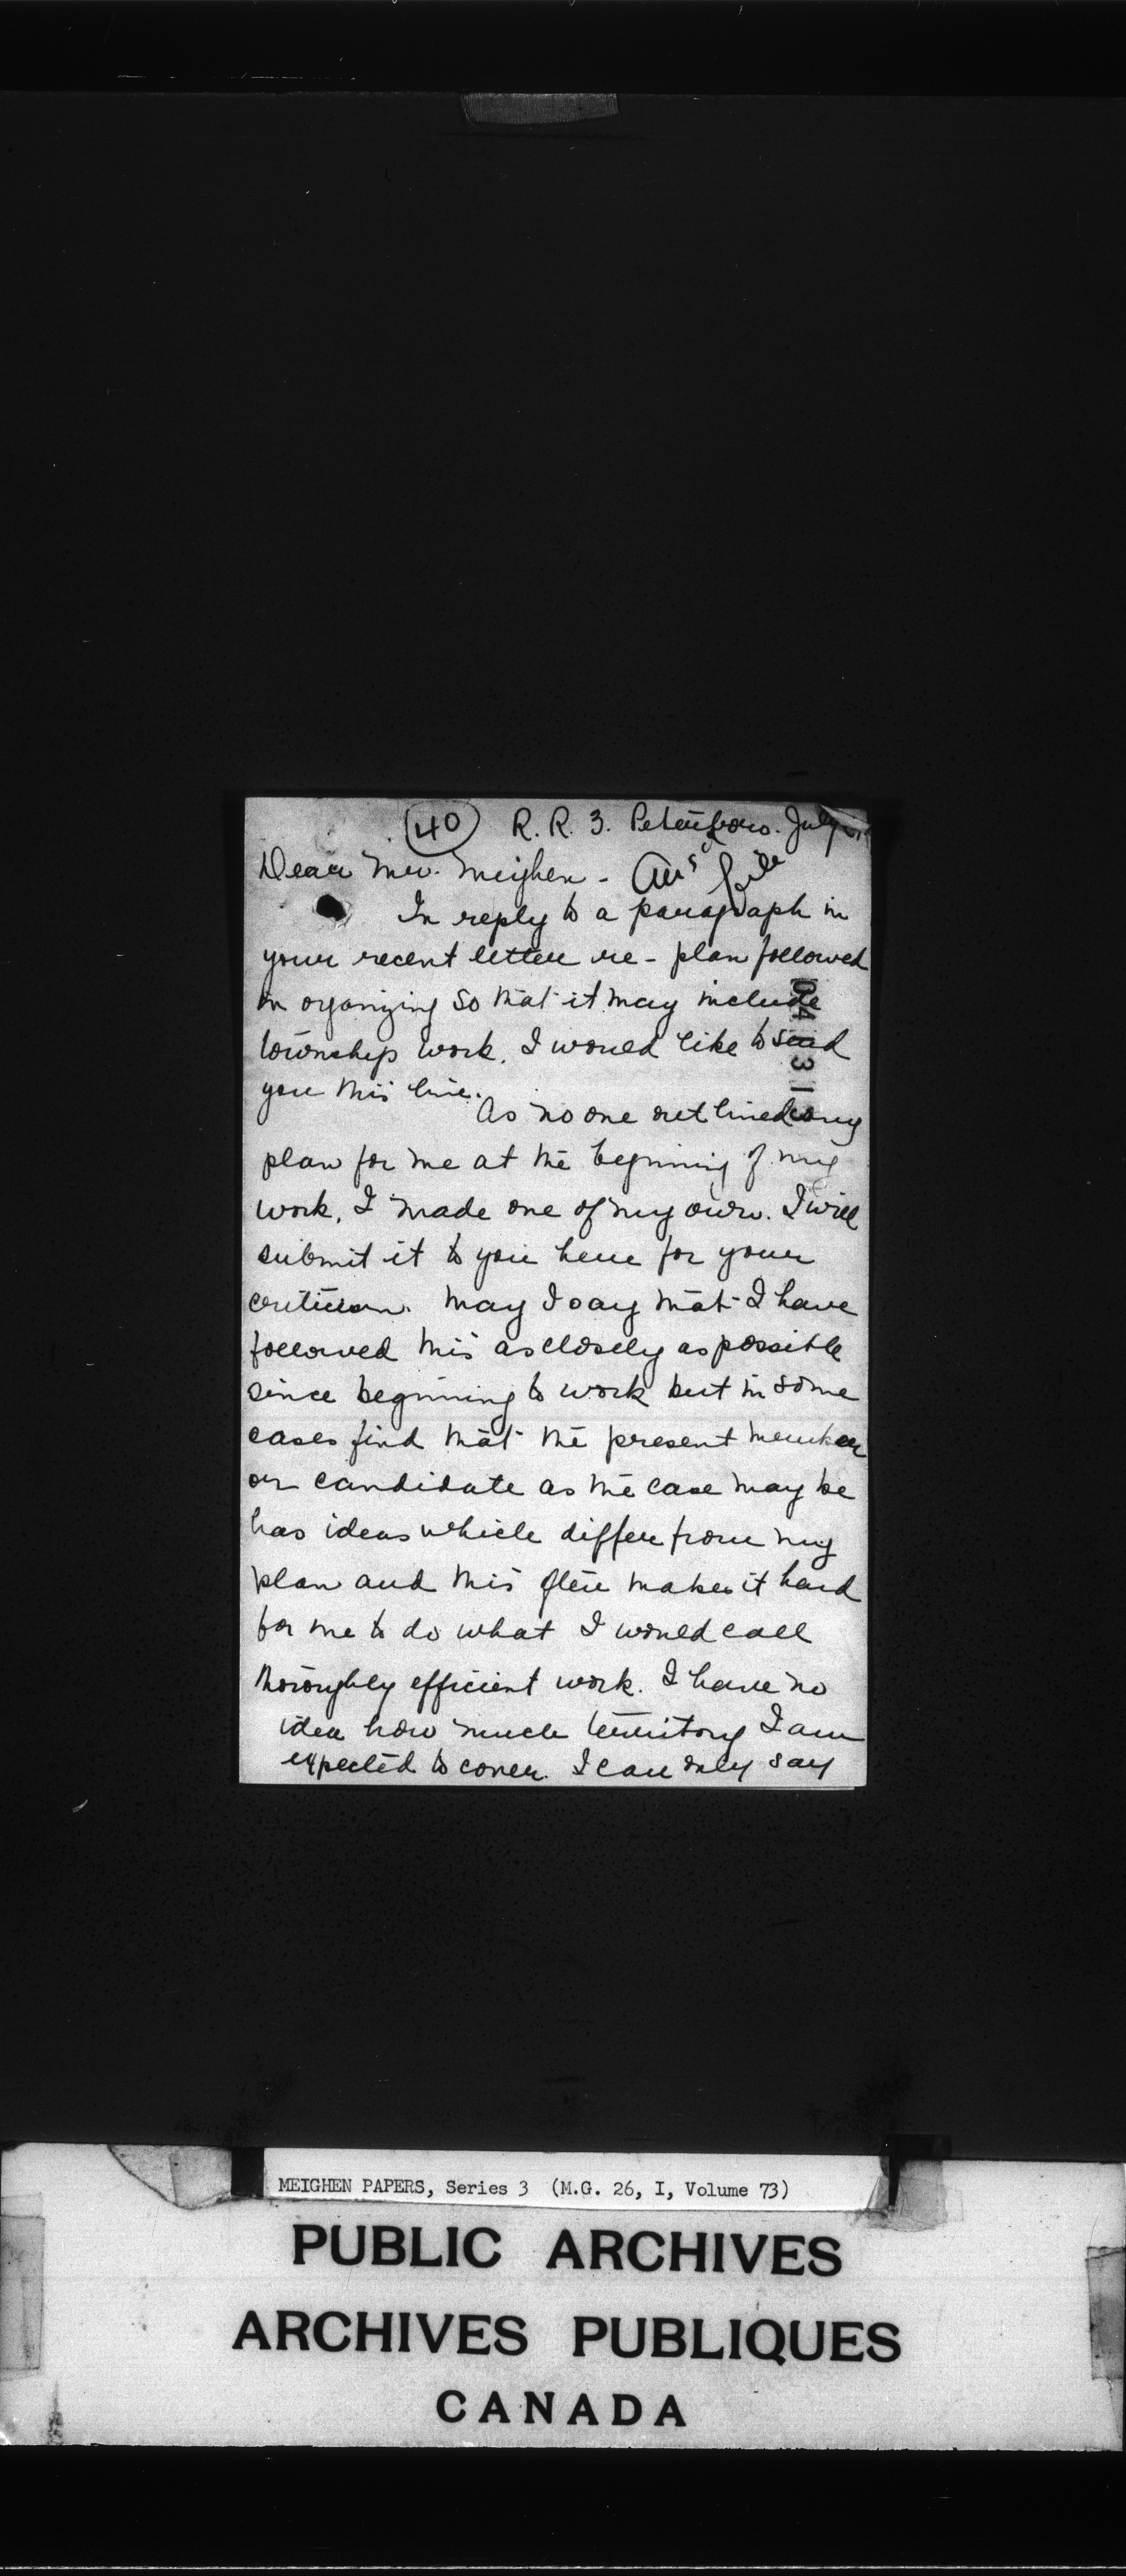 40 R. R. 3. Peterboro. July
Dear Mr. Meighen - Ans'd File
In reply to a paragraph in
your recent letter re - plan followed
in organizing so that it may include
township work, I would like to send
you this line.
As no one outlined any
plan for me at the beginning of my
work, I made one of my own. I will
submit it to you here for your
criticism. May I say that I have
followed this as closely as possible
since beginning to work but in some
cases find that the present member
or candidate as the case may be
has ideas which differ from my
plan and this often makes it hard
for me to do what I would call
thoroughly efficient work. I have no
idea how much territory I am
expected to cover. I can only say
MEIGHEN PAPERS, Series 3 (M.G. 26, I, Volume 73)
PUBLIC ARCHIVES
ARCHIVES PUBLIQUES
CANADA